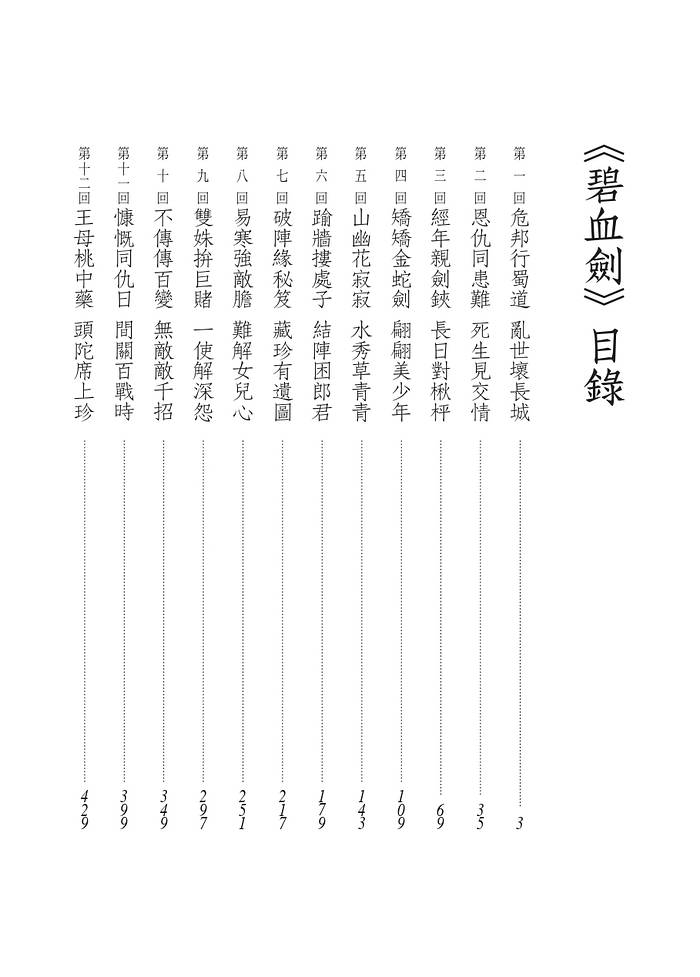 《碧血劍》目錄
第一回 危邦行蜀道 亂世壞長城 3
第二回 恩仇同患難 死生見交情 35
第三回 經年親劍鋏 長日對楸枰 69
第四回 矯矯金蛇劍 翩翩美少年 109
第五回 山幽花寂寂 水秀草青青 143
第六回 踰牆摟處子 結陣困郎君 179
第七回 破陣緣秘笈 藏珍有遺圖 217
第八回 易寒強敵膽 難解女兒心 251
第九回 雙姝拚巨賭 一使解深怨 297
第十回 不傳傳百變 無敵敵千招 349
第十一回 慷慨同仇日 間關百戰時 399
第十二回 王母桃中藥 頭陀席上珍 429